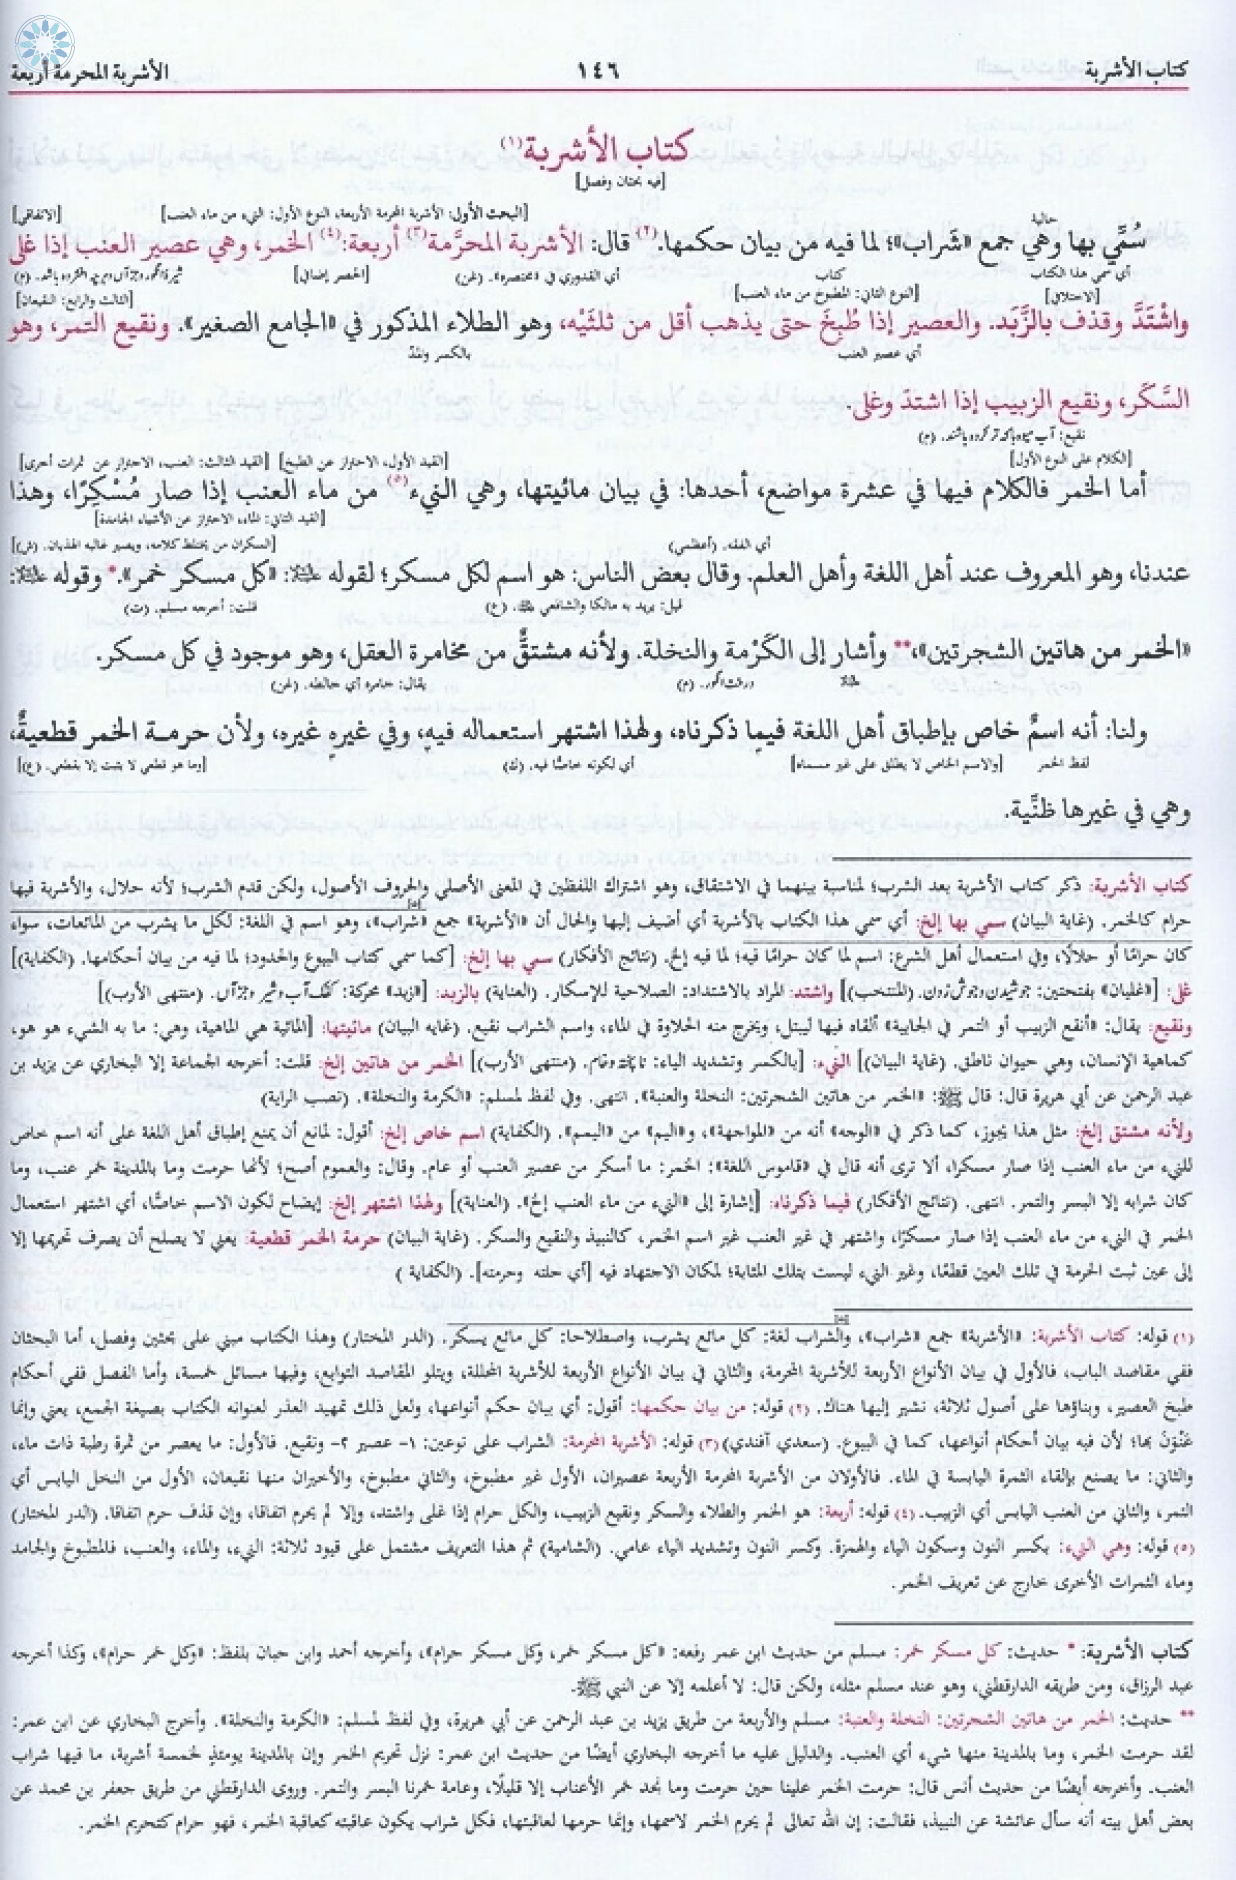 كتاب الأشربة
١٤٦
الأشربة المحرمة أربعة
كتاب الأشربة(١)
[فيه بحثان وفصل]
حالية
[البحث الأول: الأشربة المحرمة الأربعة، النوع الأول: النيء من ماء العنب]
[الاتفاقي]
سُمِّي بها وهي جمع «شَراب»؛ لما فيه من بيان حكمها.(٢) قال: الأشربة المحرَّمة(٣) أربعة:(٤) الخمر، وهي عصير العنب إذا غلى
أي سمي هذا الكتاب
كتاب
أي القدوري في «مختصره». (غن)
[الحصر إضافي]
[الاختلافي]
[النوع الثاني: المطبوخ من ماء العنب]
[الثالث والرابع: النقيعان]
واشْتَدَّ وقذف بالزَّبَد. والعصير إذا طُبِخَ حتى يذهب أقل من ثلثَيْه، وهو الطلاء المذكور في «الجامع الصغير». ونقيع التمر، وهو
أي عصير العنب
بالكسر ومَدّ
السَّكَر، ونقيع الزبيب إذا اشتدّ وغلى.
[الكلام على النوع الأول]
[القيد الأول، الاحتراز عن الطبخ]
[القيد الثالث: العنب، الاحتراز عن ثمرات أخرى]
أما الخمر فالكلام فيها في عشرة مواضع، أحدها: في بيان مائيتها، وهي النيء(٥) من ماء العنب إذا صار مُسْكِرًا، وهذا
[القيد الثاني: الماء، الاحتراز عن الأشياء الجامدة]
أي الفقه. (أعظمي)
[السكران من يختلط كلامه، ويصير غالبه الهذيان. (ش)]
عندنا، وهو المعروف عند أهل اللغة وأهل العلم. وقال بعض الناس: هو اسم لكل مسكر؛ لقوله ﵇: «كل مسكر خمر».* وقوله ﵇:
قيل: يريد به مالكا والشافعي ﵀. (ع)
قلت: أخرجه مسلم. (ت)
«الخمر من هاتين الشجرتين»،** وأشار إلى الكَرْمة والنخلة. ولأنه مشتقٌّ من مخامرة العقل، وهو موجود في كل مسكر.
يقال: خامره أي خالطه. (غن)
ولنا: أنه اسمٌ خاص بإطباق أهل اللغة فيما ذكرناه، ولهذا اشتهر استعماله فيه، وفي غيرهِ غيره، ولأن حرمـة الخمر قطعيةٌ،
لفظ الخمر
[والاسم الخاص لا يطلق على غير مسماه]
أي لكونه خاصًّا فيه. (ك)
[وما هو قطعي لا يثبت إلا بقطعي. (ع)]
وهي في غيرها ظنَّية.
كتاب الأشربة: ذكر كتاب الأشربة بعد الشرب؛ لمناسبة بينهما في الاشتقاق، وهو اشتراك اللفظين في المعنى الأصلي والحروف الأصول، ولكن قدم الشرب؛ لأنه حلال، والأشربة فيها
حرام كالخمر. (غاية البيان) سمي بها إلخ: أي سمي هذا الكتاب بالأشربة أي أضيف إليها والحال أن «الأشربة» جمع «شراب»، وهو اسم في اللغة: لكل ما يشرب من المائعات، سواء
كان حرامًا أو حلالًا، وفي استعمال أهل الشرع: اسم لما كان حرامًا فيه؛ لما فيه إلخ. (نتائج الأفكار) سمي بها إلخ: [كما سمي كتاب البيوع والحدود؛ لما فيه من بيان أحكامها. (الكفاية)]
غلى: [«غليان» بفتحتين: جوشيدن وجوش زدن. (المنتخب)] واشتد: المراد بالاشتداد: الصلاحية للإسكار. (العناية) بالزبد: [«زبد» محركة: كفك آب وشير وجز آں. (منتهى الأرب)]
ونقيع: يقال: «أنقع الزبيب أو التمر في الخابية» ألقاه فيها ليبتل، ويخرج منه الحلاوة في الماء، واسم الشراب نقيع. (غاية البيان) مائيتها: [المائية هي الماهية، وهي: ما به الشيء هو هو،
كماهية الإنسان، وهي حيوان ناطق. (غاية البيان)] النيء: [بالكسر وتشديد الياء: ناپخته وخام. (منتهى الأرب)] الخمر من هاتين إلخ: قلت: أخرجه الجماعة إلا البخاري عن يزيد بن
عبد الرحمن عن أبي هريرة قال: قال ﷺ: «الخمر من هاتين الشجرتين: النخلة والعنبة». انتهى. وفي لفظ لمسلم: «الكرمة والنخلة». (نصب الراية)
ولأنه مشتق إلخ: مثل هذا يجوز، كما ذكر في «الوجه» أنه من «المواجهة»، و«اليم» من «اليمم». (الكفاية) اسم خاص إلخ: أقول: لمانع أن يمنع إطباق أهل اللغة على أنه اسم خاص
للنيء من ماء العنب إذا صار مسكرا، ألا ترى أنه قال في «قاموس اللغة»: الخمر: ما أسكر من عصير العنب أو عام. وقال: والعموم أصح؛ لأنها حرمت وما بالمدينة خمر عنب، وما
كان شرابه إلا البسر والتمر. انتهى. (نتائج الأفكار) فيما ذكرناه: [إشارة إلى «النيء من ماء العنب إلخ». (العناية)] ولهذا اشتهر إلخ: إيضاح لكون الاسم خاصًّا، أي اشتهر استعمال
الخمر في النيء من ماء العنب إذا صار مسكرًا، واشتهر في غير العنب غير اسم الخمر، كالنبيذ والنقيع والسكر. (غاية البيان) حرمة الخمر قطعية: يعني لا يصلح أن يصرف تحريمها إلا
إلى عين ثبت الحرمة في تلك العين قطعًا، وغير النيء ليست بتلك المثابة؛ لمكان الاجتهاد فيه [أي حلته وحرمته]. (الكفاية)
(١) قوله: كتاب الأشربة: «الأشربة» جمع «شراب»، والشراب لغة: كل مائع يشرب، واصطلاحا: كل مائع يسكر. (الدر المختار) وهذا الكتاب مبني على بحثين وفصل، أما البحثان
ففي مقاصد الباب، فالأول في بيان الأنواع الأربعة للأشربة المحرمة، والثاني في بيان الأنواع الأربعة للأشربة المحللة، ويتلو المقاصد التوابع، وفيها مسائل خمسة، وأما الفصل ففي أحكام
طبخ العصير، وبناؤها على أصول ثلاثة، نشير إليها هناك. (٢) قوله: من بيان حكمها: أقول: أي بيان حكم أنواعها، ولعل ذلك تمهيد العذر لعنوانه الكتاب بصيغة الجمع، يعني وإنما
عَنْوَنَ بها؛ لأن فيه بيان أحكام أنواعها، كما في البيوع. (سعدي آفندي) (٣) قوله: الأشربة المحرمة: الشراب على نوعين: ١- عصير ٢- ونقيع. فالأول: ما يعصر من ثمرة رطبة ذات ماء،
والثاني: ما يصنع بإلقاء الثمرة اليابسة في الماء. فالأولان من الأشربة المحرمة الأربعة عصيران، الأول غير مطبوخ، والثاني مطبوخ، والأخيران منها نقيعان، الأول من النخل اليابس أي
التمر، والثاني من العنب اليابس أي الزبيب. (٤) قوله: أربعة: هو الخمر والطلاء والسكر ونقيع الزبيب، والكل حرام إذا غلى واشتد، وإلا لم يحرم اتفاقا، وإن قذف حرم اتفاقا. (الدر المختار)
(٥) قوله: وهي النيء: بكسر النون وسكون الياء والهمزة. وكسر النون وتشديد الياء عامي. (الشامية) ثم هذا التعريف مشتمل على قيود ثلاثة: النيء، والماء، والعنب، فالمطبوخ والجامد
وماء الثمرات الأخرى خارج عن تعريف الخمر.
كتاب الأشربة: * حديث: كل مسكر خمر: مسلم من حديث ابن عمر رفعه: «كل مسكر خمر، وكل مسكر حرام»، وأخرجه أحمد وابن حبان بلفظ: «وكل خمر حرام»، وكذا أخرجه
عبد الرزاق، ومن طريقه الدارقطني، وهو عند مسلم مثله، ولكن قال: لا أعلمه إلا عن النبي ﷺ.
** حديث: الخمر من هاتين الشجرتين: النخلة والعنبة: مسلم والأربعة من طريق يزيد بن عبد الرحمن عن أبي هريرة، وفي لفظ لمسلم: «الكرمة والنخلة». وأخرج البخاري عن ابن عمر:
لقد حرمت الخمر، وما بالمدينة منها شيء أي العنب. والدليل عليه ما أخرجه البخاري أيضًا من حديث ابن عمر: نزل تحريم الخمر وإن بالمدينة يومئذ لخمسة أشربة، ما فيها شراب
العنب. وأخرجه أيضًا من حديث أنس قال: حرمت الخمر علينا حين حرمت وما نجد خمر الأعناب إلا قليلًا، وعامة خمرنا البسر والتمر. وروى الدارقطني من طريق جعفر بن محمد عن
بعض أهل بيته أنه سأل عائشة عن النبيذ، فقالت: إن الله تعالى لم يحرم الخمر لاسمها، وإنما حرمها لعاقبتها، فكل شراب يكون عاقبته كعاقبة الخمر، فهو حرام كتحريم الخمر.